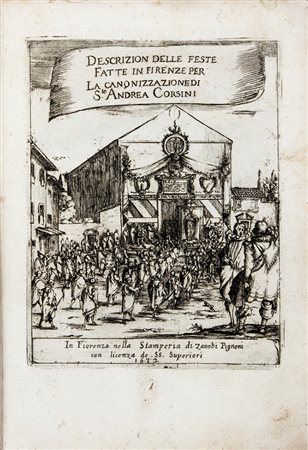 DESCRIZION DELLE FESTE
FATTE IN FIRENZE PER
LA CANONIZZAZIONE DI
Sto ANDREA CORSINI
In Fiorenza nella Stamperia di Zanobi Pignoni
con licenza de SS. Superiori
1632